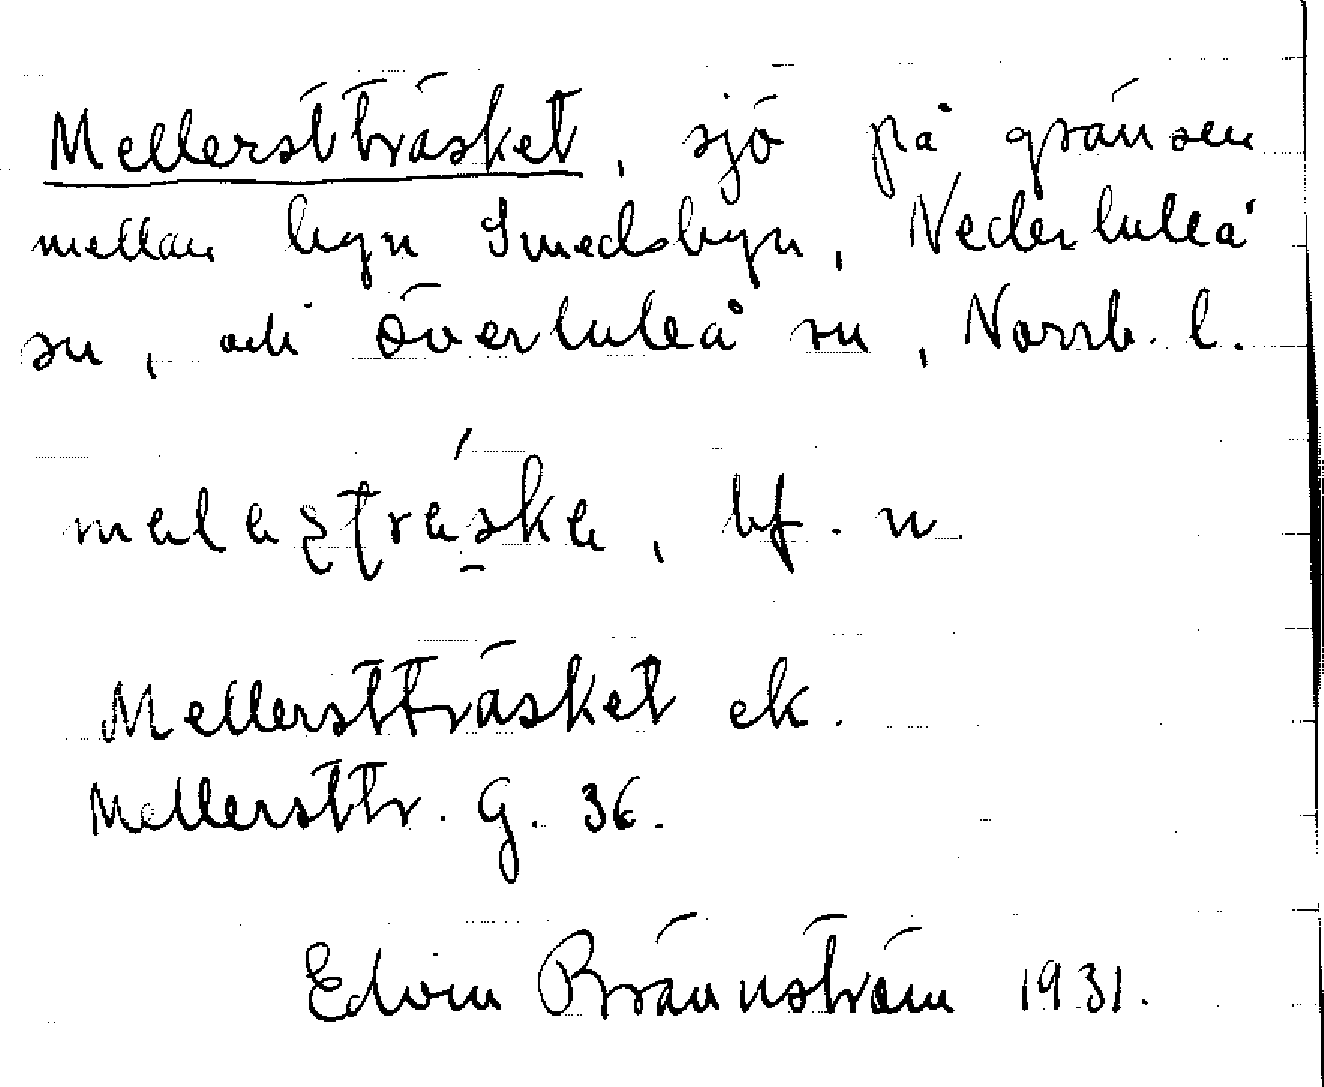 Mellerstträsket, sjö på gränsen
mellan byn Smedsbyn, Nederluleå
sn, och Överluleå sn, Norrb. l.
bf. n.
Mellerstträsket ek.
Mellersttr. G. 36.
Edvin Brännström 1931.